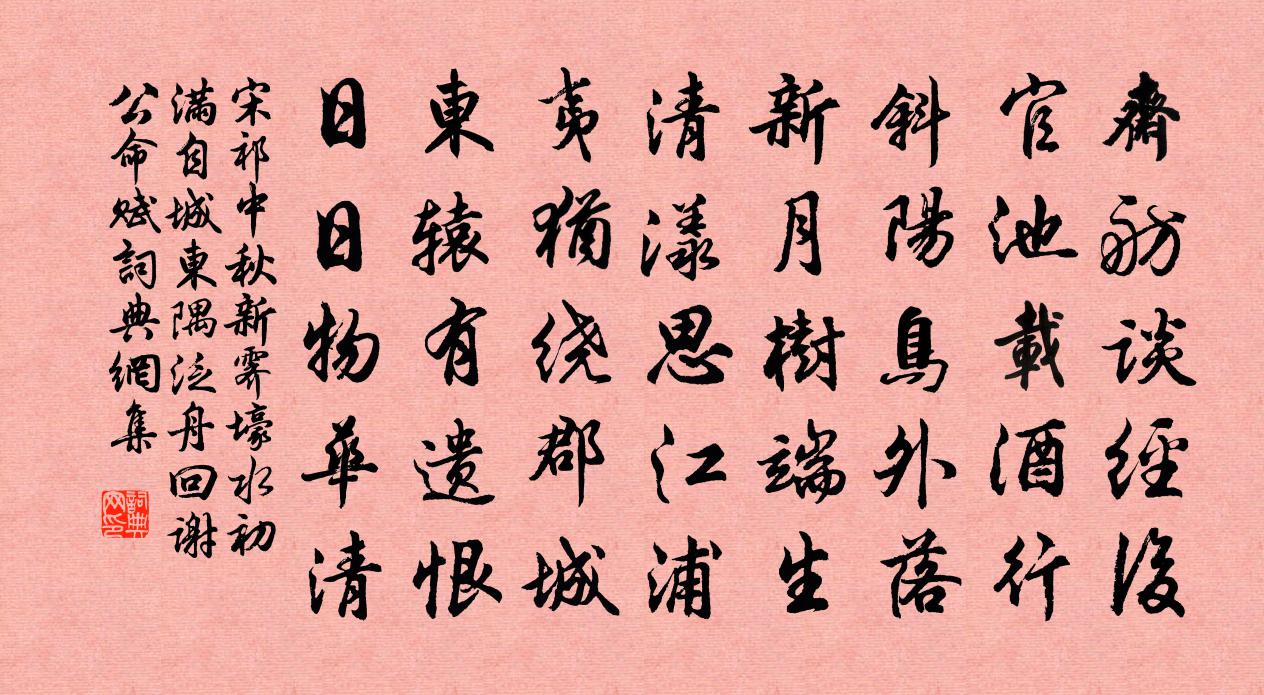 齋舫談經後
官池載酒行
斜陽鳥外落
新月樹端生
清漾思江浦
夷猶绕郡城
東辕有遗恨
日日物華清
宋祁中秋新霽壕水初
滿自城東隅泛舟回谢
公命赋詞典網集
詞典网印